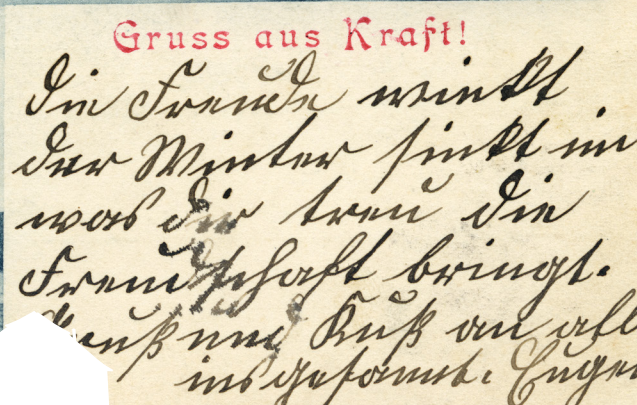 Gruss aus Kraft!
Die Freude winkt
der Winter sinkt im
was dir treu die
Freundschaft bringt.
Gruß und Kuß an all
insgesammt. Eugen